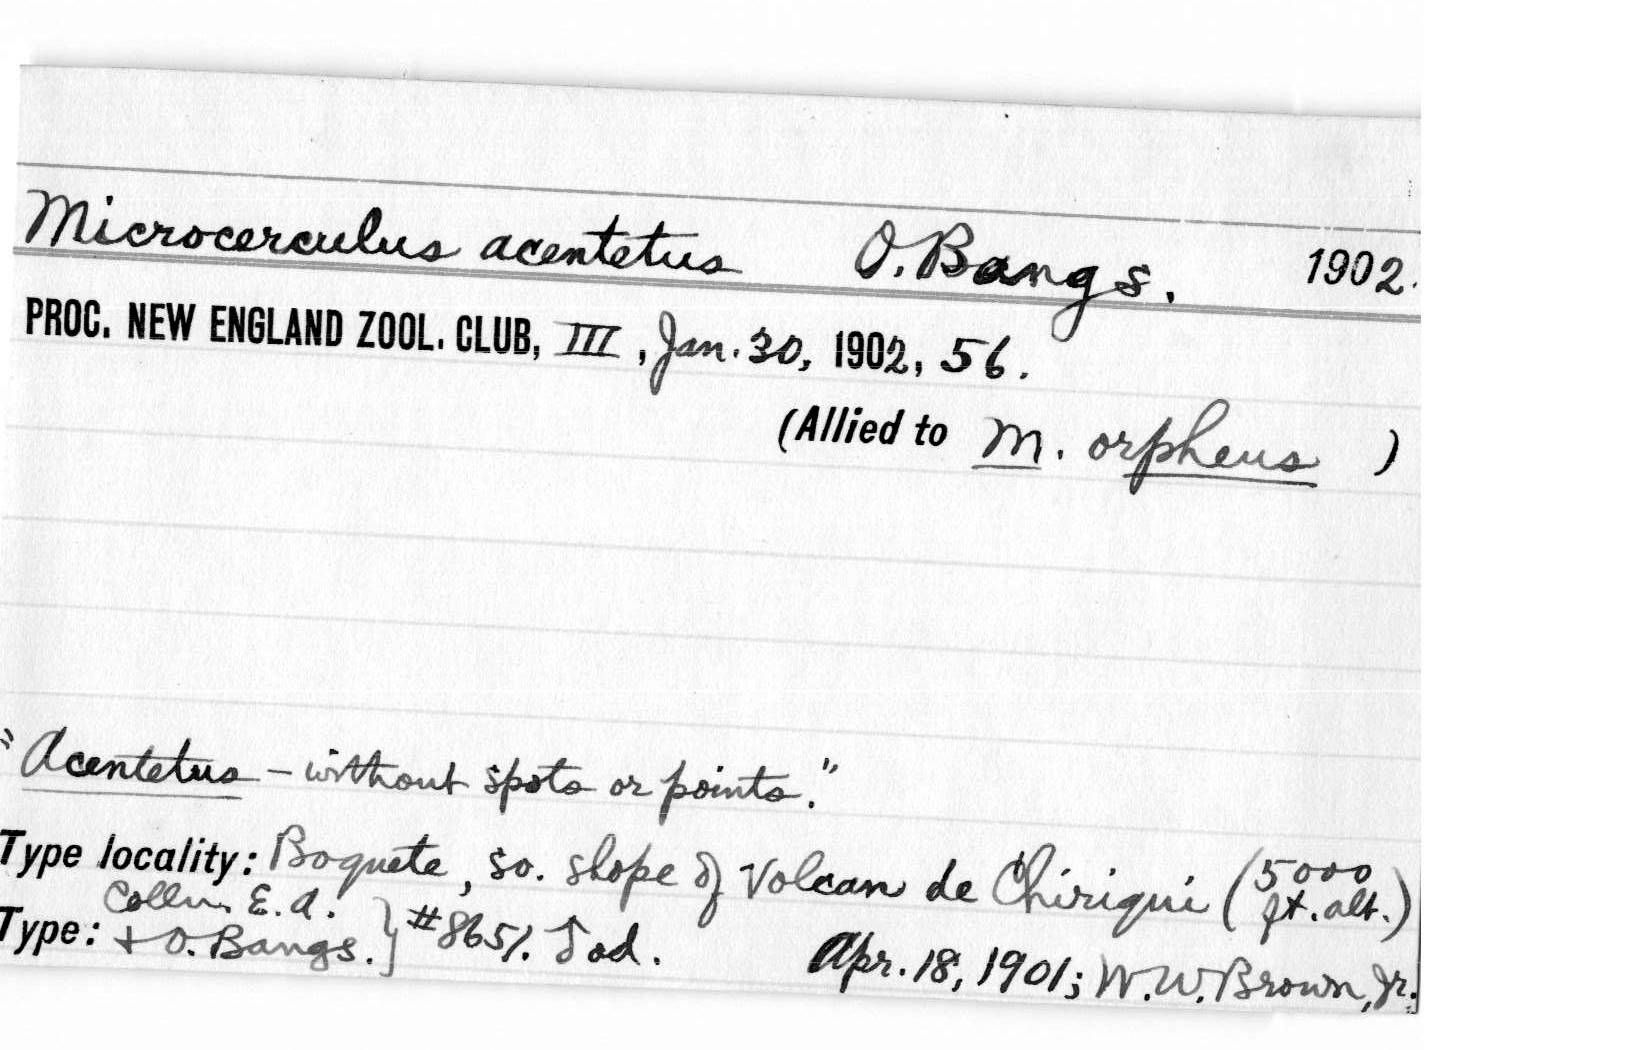 Microcerculus acentetus O. Bangs. 1902.
PROC. NEW ENGLAND ZOOL. CLUB, III, Jan. 30, 1902, 56.
(Allied to M. orpheus )
"Acentetus – without spots or points."
Type locality: Boquete, so. slope of Volcan de Chiriqui (5000 ft. alt.)
Type: Colln. E. A. + O. Bangs. } #8651. ♂ ad. Apr. 18, 1901; W. W. Brown, Jr.